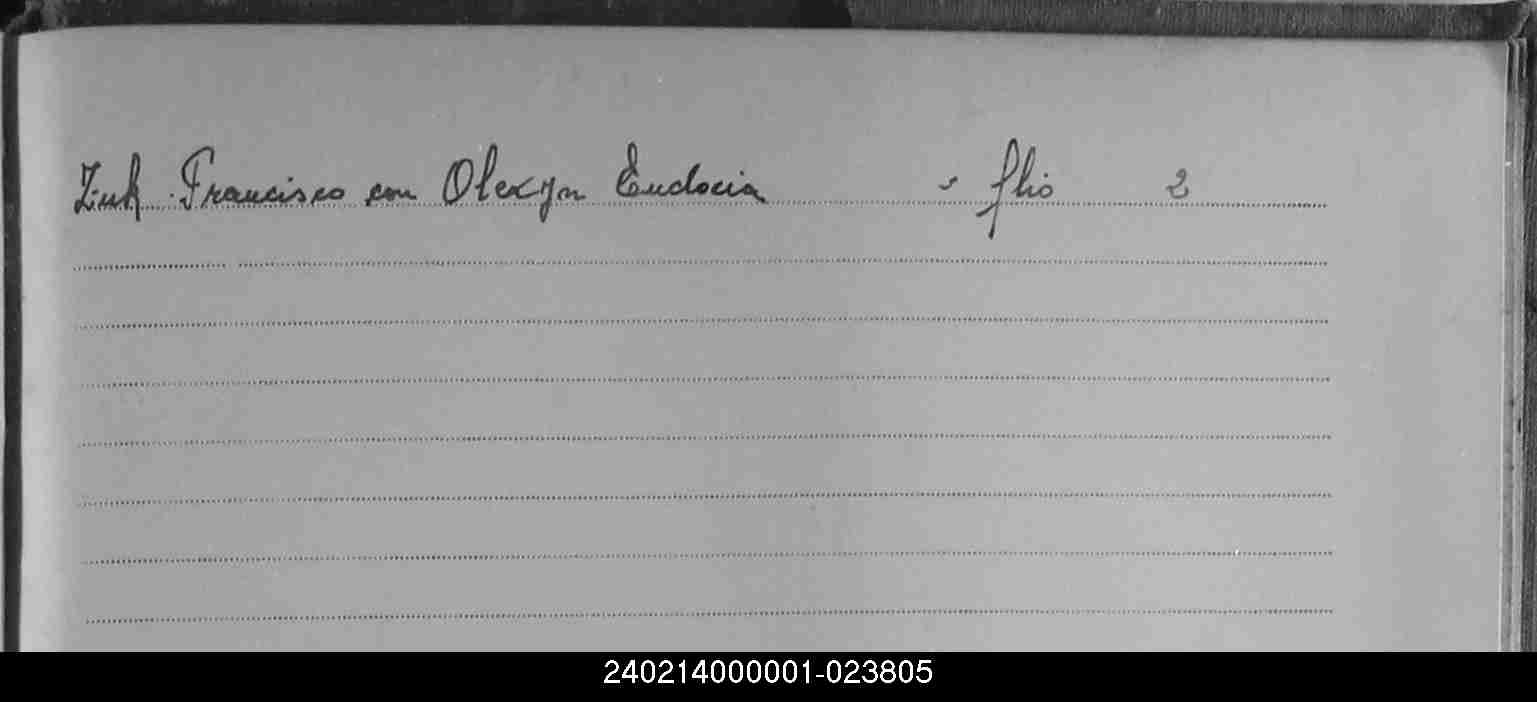 Zuk Francisco con Olexyn Eudocia " flio 2
240214000001-023805